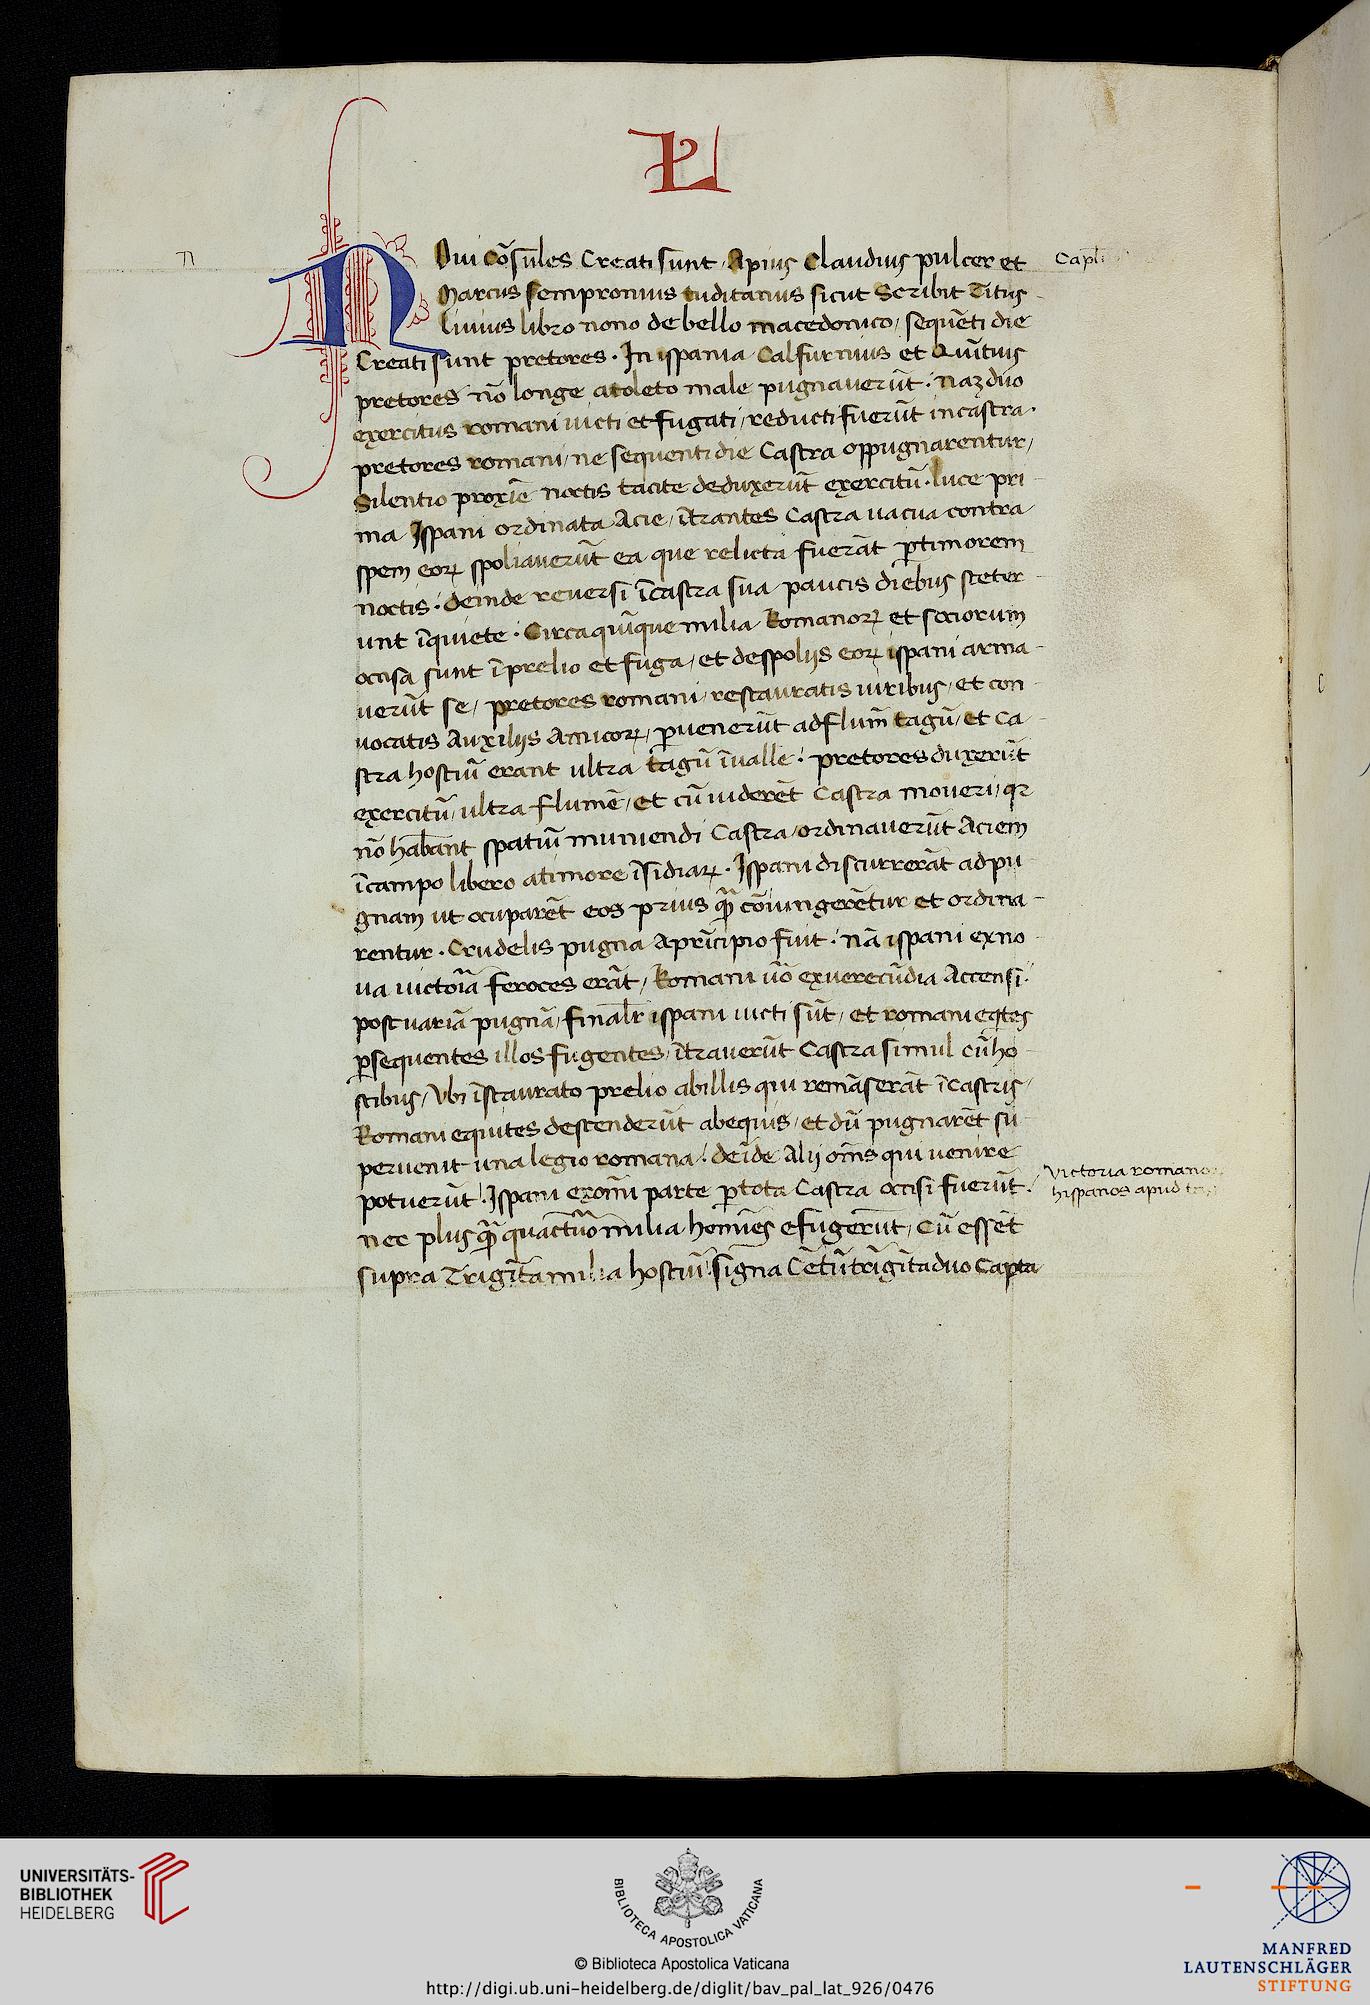 L
n
N Oui Cōsules Creati sunt, Apius Claudius pulcer et
Marcus sempronius tuditanus sicut Scribit Titus
livius libro nono de bello macedonico, sequēti die
Creati sunt pretores. In ispania Calfurnius et Quītius
pretores nō longe a toleto male pugnaverūt. naʒ duo
exercitus romani victi et fugati, reducti fuerūt in castra.
pretores romani, ne sequenti die Castra oppugnarentur,
Silentio proxīe noctis tacite deduxerūt exercitū. luce pri
ma Ispani ordinata Acie, ītrantes Castra vacua contra
spem eoꝝ spoliaverūt ea que relicta fuerāt ꝑ timorem
noctis. deinde reversi ī castra sua paucis diebus steter
unt ī quiete. Circa quīque milia Romanoꝝ et sociorum
occisa sunt ī prelio et fuga, et de spoliis eoꝝ ispani arma
verūt se, pretores romani, restauratis viribus, et con
vocatis Auxiliis Amicoꝝ, ꝑvenerūt ad flumē tagū, et Ca
stra hostiū erant ultra tagū ī valle. pretores duxerūt
exercitū, ultra flumē, et cū viderēt Castra moveri, qꝛ
nō habebant spatiū muniendi Castra, ordinaverūt Aciem
ī campo libero a timore īsidiaꝝ. Ispani discurrerāt ad pu
gnam ut ocuparēt eos prius quā cōiungerētur et ordina
rentur. Crudelis pugna A prīcipio fuit. nā ispani ex no
va victoria feroces erāt, Romani vō ex verecūdia Accensi.
post variā pugnā, finalr ispani victi sūt, et romani eqtes
ꝑsequentes illos fugentes, ītraverūt Castra simul cū ho
stibus, Ubi īstaurato prelio ab illis qui remāserāt ī castris,
Romani equites descenderūt ab equis, et dū pugnarēt su
pervenit una legio romana. deīde Alij oms qui venire
potuerūt. Ispani ex omī parte ꝑ tota Castra occisi fuerūt.
nec plus quā quactuō milia homīes efugerunt, Cū essēt
supra Trigīta milia hostiū. signa Cētū trigīta duo Capta
Victoria romano
hispanos apud
UNIVERSITÄTS-
BIBLIOTHEK
HEIDELBERG
BIBLIOTECA APOSTOLICA VATICANA
© Biblioteca Apostolica Vaticana
http://digi.ub.uni-heidelberg.de/diglit/bav_pal_lat_926/0476
MANFRED
LAUTENSCHLÄGER
STIFTUNG